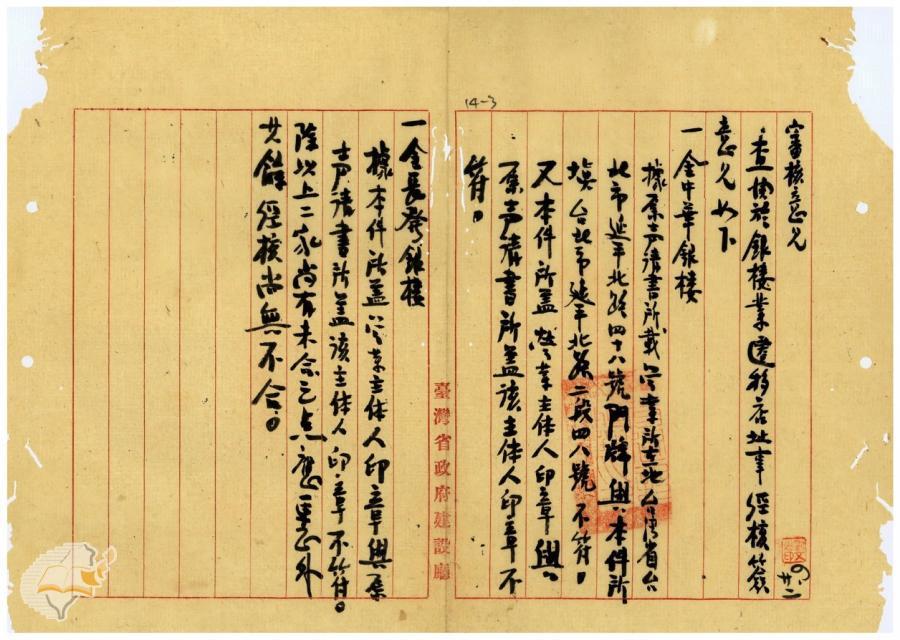 14-3
審核意見
查關於銀樓業遷移店址事經核簽
意見如下
一金中華銀樓
據原声請書所載營業所在地台灣省台
北市延平北路四十八號門牌與本件所
填台北市延平北路二段四八號不符。
又本件所盖營業主体人印章與
原声請書所盖該主体人印章不
符。
臺灣省政府建設廳
一金長發銀樓
據本件所盖營業主体人印章與原
声請書所盖該主体人印章不符。
除以上二家尚有未合之点應更正外
其餘經核尚無不合。